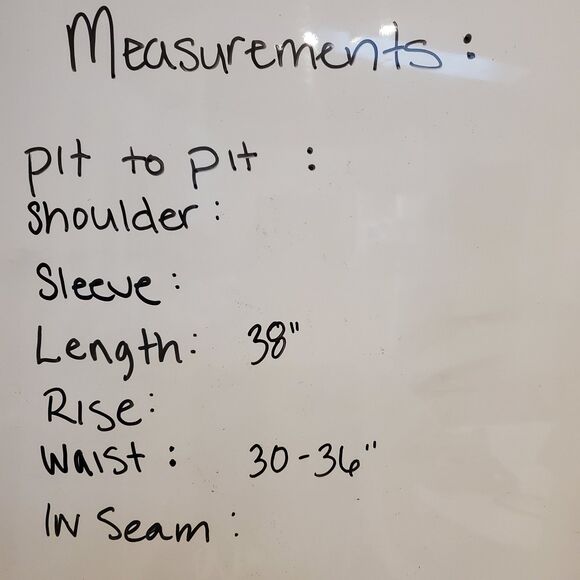 Measurements:
Pit to Pit :
Shoulder:
Sleeve:
Length: 38"
Rise:
Waist: 30-36"
IN Seam: